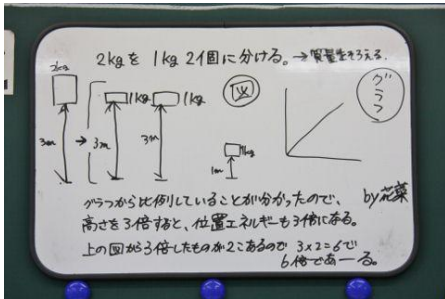 2kgを 1kg 2個に分ける。→質量をそろえる。
2kg
3m
→
3m
1kg
3m
1kg
図
1kg
1m
グラフ
グラフから比例していることが分かったので、
by花菜
高さを3倍すると、位置エネルギーも3倍になる。
上の図から3倍したものが2こあるので 3×2=6で
6倍であーる。